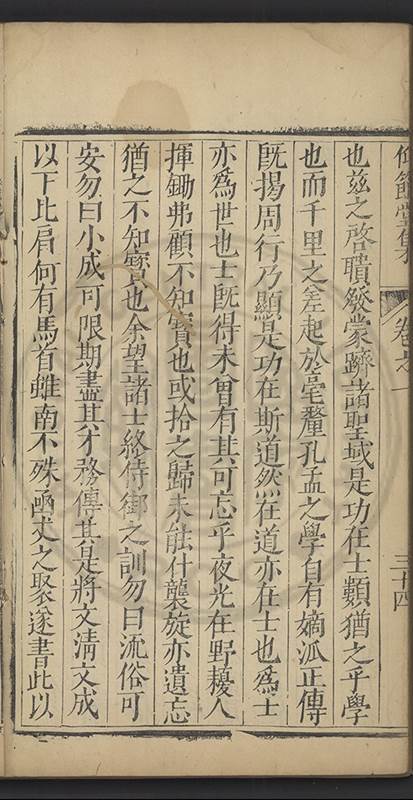 仰節堂集 卷之一 三十四
也茲之啓聵發蒙躋諸聖域是功在士類猶之乎學
也而千里之差起於毫釐孔孟之學自有嫡派正傳
旣揭周行乃顯是功在斯道然在道亦在士也爲士
亦爲世也士旣得未曾有其可忘乎夜光在野耰人
揮鋤弗顧不知寶也或拾之歸未能什襲旋亦遺忘
猶之不知寶也余望諸士終侍御之訓勿曰流俗可
安勿曰小成可限期盡其才務傳其是將文淸文成
以下比肩何有馬首雖南不殊函丈之聚遂書此以